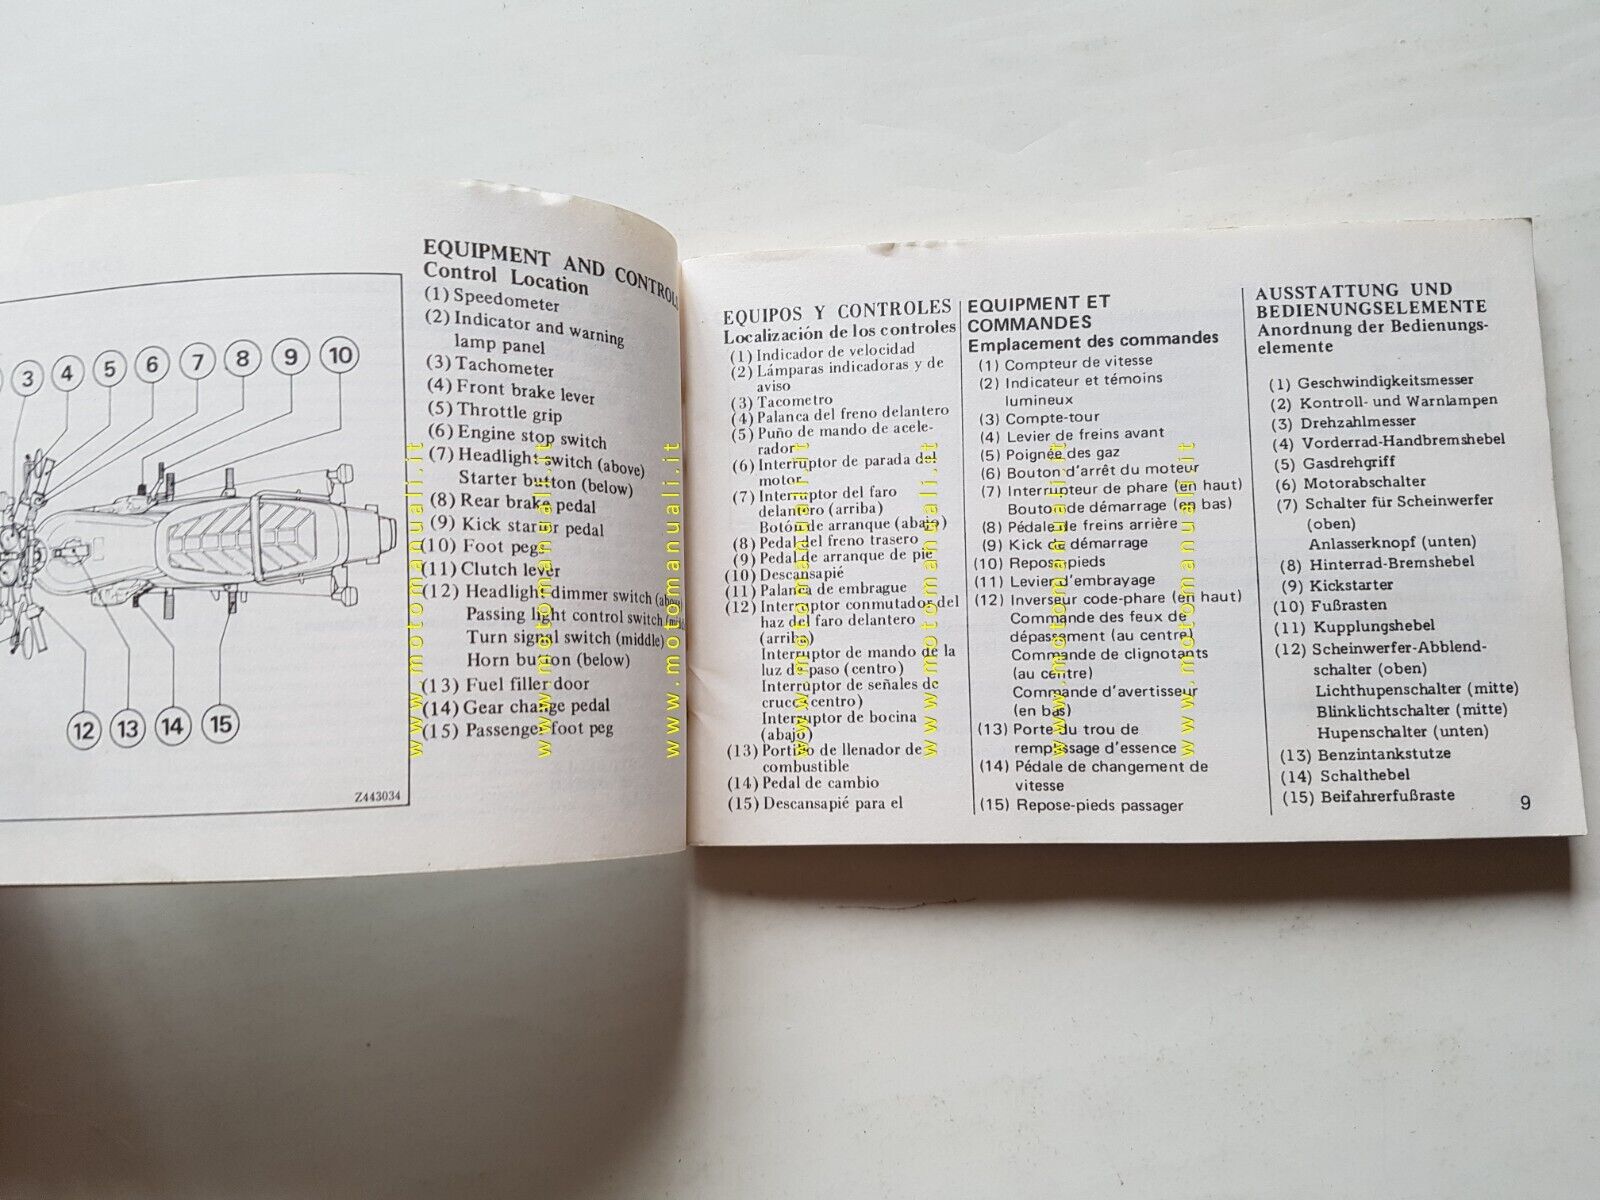 3 4 5 6 7 8 9 10
12 13 14 15
Z443034
EQUIPMENT AND CONTROLS
Control Location
(1) Speedometer
(2) Indicator and warning
lamp panel
(3) Tachometer
(4) Front brake lever
(5) Throttle grip
(6) Engine stop switch
(7) Headlight switch (above)
Starter button (below)
(8) Rear brake pedal
(9) Kick starter pedal
(10) Foot pegs
(11) Clutch lever
(12) Headlight dimmer switch (above)
Passing light control switch
Turn signal switch (middle)
Horn button (below)
(13) Fuel filler door
(14) Gear change pedal
(15) Passenger foot peg
EQUIPOS Y CONTROLES
Localización de los controles
(1) Indicador de velocidad
(2) Lámparas indicadoras y de
aviso
(3) Tacometro
(4) Palanca del freno delantero
(5) Puño de mando de acele-
rador
(6) Interruptor de parada del
motor
(7) Interruptor del faro
delantero (arriba)
Botón de arranque (abajo)
(8) Pedal del freno trasero
(9) Pedal de arranque de pie
(10) Descansapié
(11) Palanca de embrague
(12) Interruptor conmutador del
haz del faro delantero
(arriba)
Interruptor de mando de la
luz de paso (centro)
Interruptor de señales de
cruce (centro)
Interruptor de bocina
(abajo)
(13) Portillo de llenador de
combustible
(14) Pedal de cambio
(15) Descansapié para el
EQUIPMENT ET
COMMANDES
Emplacement des commandes
(1) Compteur de vitesse
(2) Indicateur et témoins
lumineux
(3) Compte-tour
(4) Levier de freins avant
(5) Poignée des gaz
(6) Bouton d'arrêt du moteur
(7) Interrupteur de phare (en haut)
Bouton de démarrage (en bas)
(8) Pédale de freins arrière
(9) Kick de démarrage
(10) Repose-pieds
(11) Levier d'embrayage
(12) Inverseur code-phare (en haut)
Commande des feux de
dépassement (au centre)
Commande de clignotants
(au centre)
Commande d'avertisseur
(en bas)
(13) Porte du trou de
remplissage d'essence
(14) Pédale de changement de
vitesse
(15) Repose-pieds passager
AUSSTATTUNG UND
BEDIENUNGSELEMENTE
Anordnung der Bedienungs-
elemente
(1) Geschwindigkeitsmesser
(2) Kontroll- und Warnlampen
(3) Drehzahlmesser
(4) Vorderrad-Handbremshebel
(5) Gasdrehgriff
(6) Motorabschalter
(7) Schalter für Scheinwerfer
(oben)
Anlasserknopf (unten)
(8) Hinterrad-Bremshebel
(9) Kickstarter
(10) Fußrasten
(11) Kupplungshebel
(12) Scheinwerfer-Abblend-
schalter (oben)
Lichthupenschalter (mitte)
Blinklichtschalter (mitte)
Hupenschalter (unten)
(13) Benzintankstutze
(14) Schalthebel
(15) Beifahrerfußraste
9
www.motomanuali.it
www.motomanuali.it
www.motomanuali.it
www.motomanuali.it
www.motomanuali.it
www.motomanuali.it
www.motomanuali.it